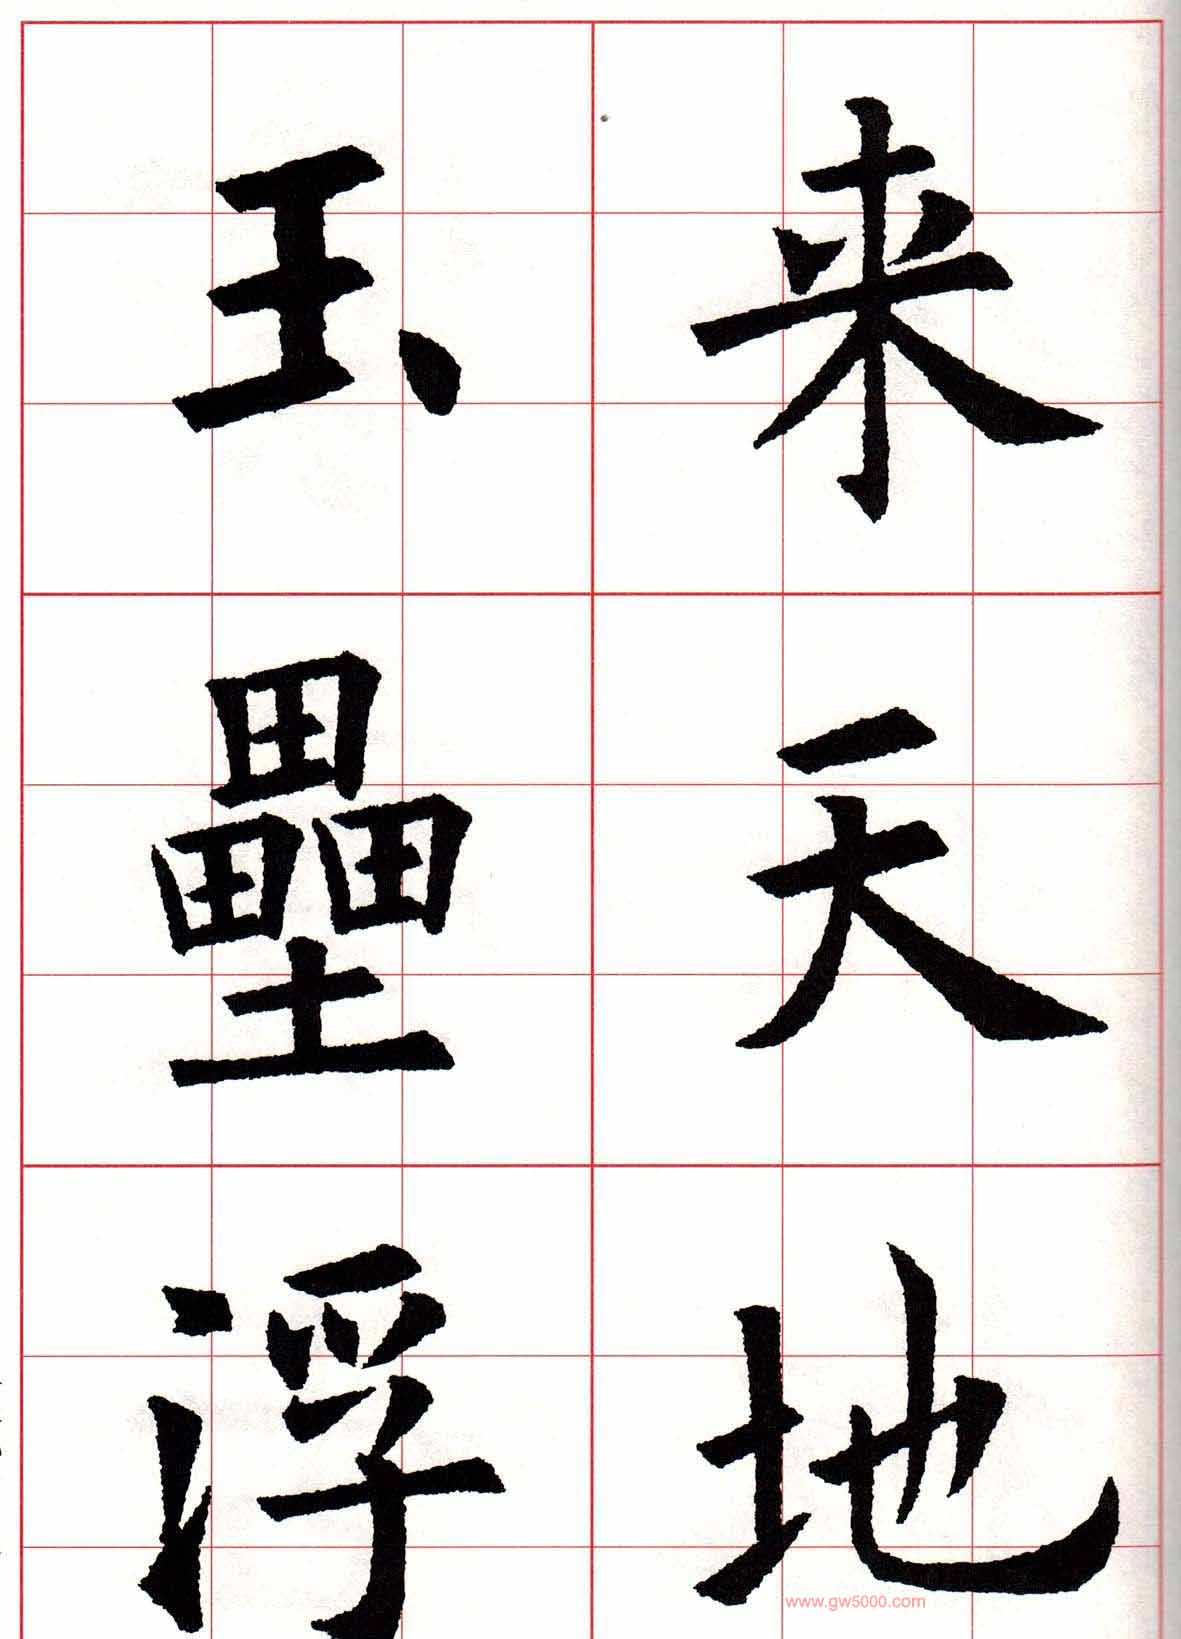 来天地
玉壘浮
www.gw5000.com